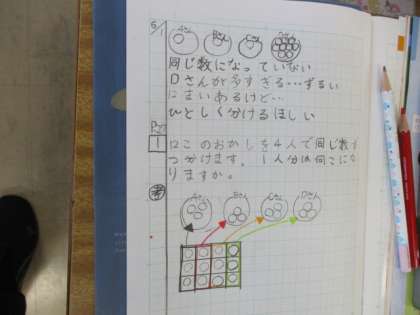 5/1
Aさん Bさん Cさん Dさん
同じ数になっていない
Dさんが多すぎる…ずるい
にまいあるけど…
ひとしく分けるほしい
P.2
1 12このおかしを4人で同じ数ず
つ分けます。1人分は何こにな
りますか。
考
Aさん Bさん Cさん Dさん